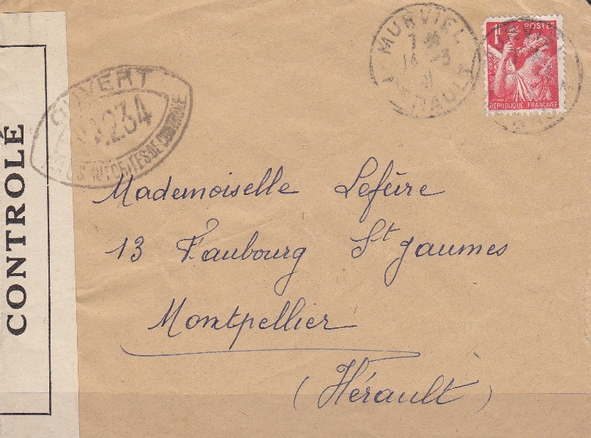 CONTROLÉ
OUVERT
234
AUTORITÉS DE CONTROLE
MURVIEL
7 30
14 -3
41
HERAULT
1F POSTES
REPUBLIQUE FRANÇAISE
Mademoiselle Lefèvre
13 Faubourg St Jaumes
Montpellier
(Hérault)